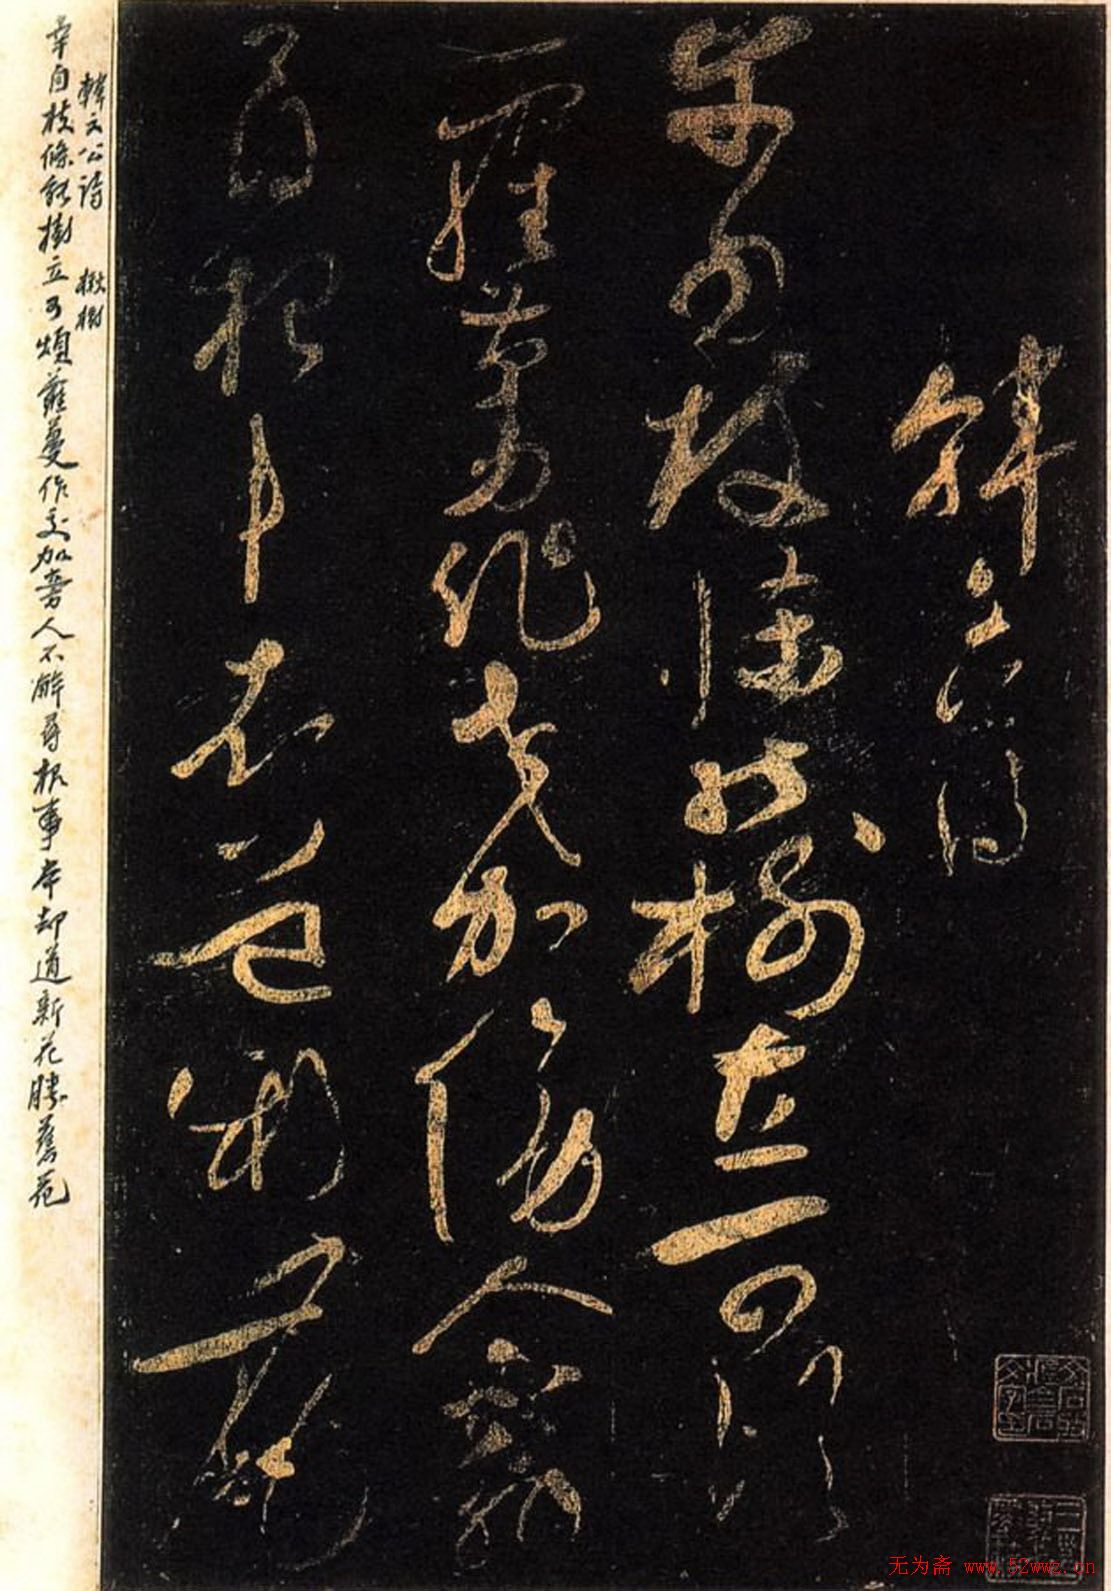 韓文公詩
幸自枝條能樹立可煩
蘿蔓作交加傍人不解
尋根本却道新花
韓文公詩 楸樹
幸自枝條能樹立可煩蘿蔓作交加旁人不解尋根事本却道新花勝舊花
无为斋 www.52wwz.cn